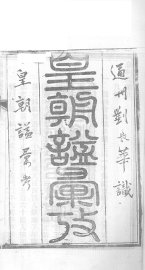 通州劉長華識
皇朝諡彙攷
皇朝諡彙考